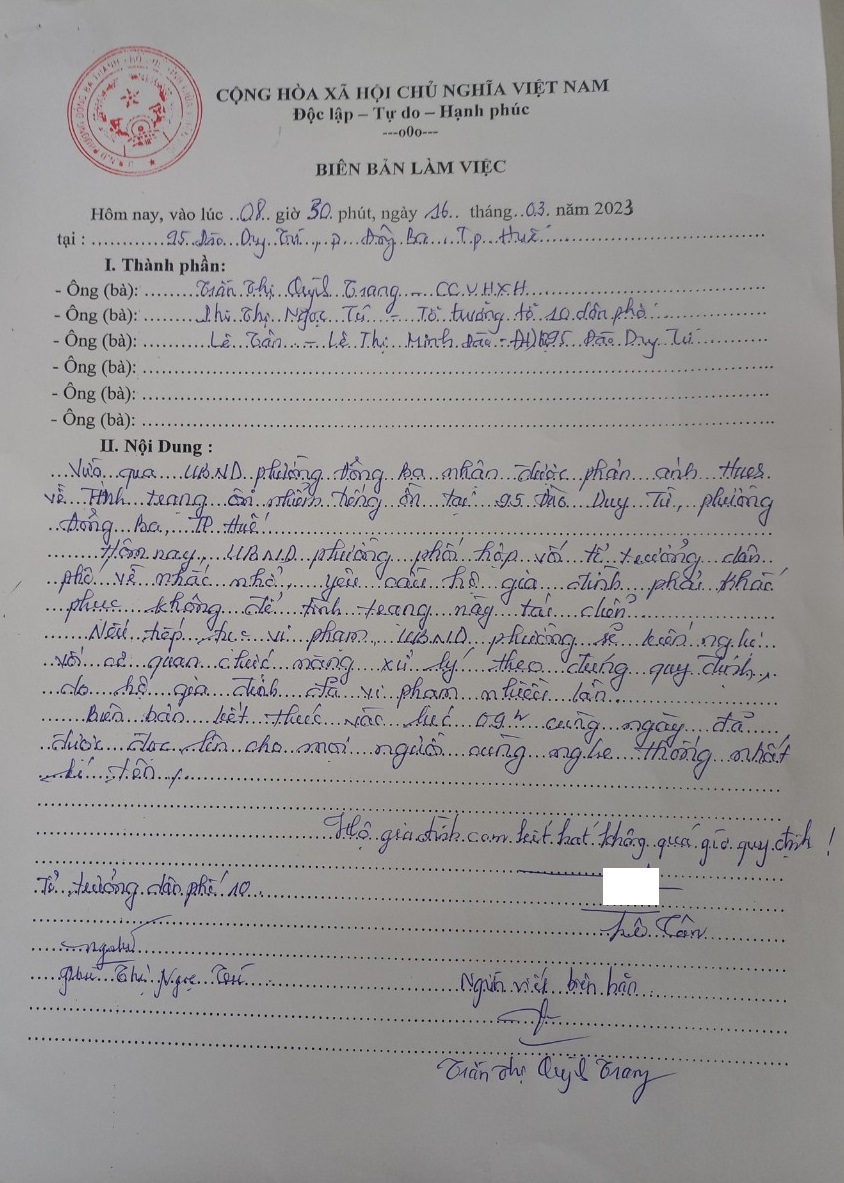 CỘNG HÒA XÃ HỘI CHỦ NGHĨA VIỆT NAM
Độc lập – Tự do – Hạnh phúc
---o0o---
BIÊN BẢN LÀM VIỆC
Hôm nay, vào lúc 08 giờ 30 phút, ngày 16 tháng 03 năm 2023
tại : 95 Đào Duy Từ, p. Đông Ba, T.p Huế
I. Thành phần:
- Ông (bà): Trần Thị Quỳnh Trang - CC.V.H.X.H
- Ông (bà): Thị Ngọc Tú - Tổ trưởng tổ 10 dân phố
- Ông (bà): Lê Trần - Lê Thị Minh Đào - 95 Đào Duy Từ
- Ông (bà):
- Ông (bà):
- Ông (bà):
II. Nội Dung :
Vừa qua UBND phường Đông Ba nhận được phản ánh HueS
về tình trạng ôn nhiễm tiếng ồn tại 95 Đào Duy Từ, phường
Đông Ba, TP Huế
Hôm nay, UBND phường phối hợp với tổ trưởng dân
phố về nhắc nhở, yêu cầu hộ gia đình phải khắc
phục không để tình trạng này tái diễn.
Nếu tiếp tục vi phạm, UBND phường sẽ kiến nghị
với cơ quan chức năng xử lý theo đúng quy định,
do hộ gia đình đã vi phạm nhiều lần.
Biên bản kết thúc vào lúc 09h cùng ngày đã
được đọc lên cho mọi người cùng nghe thống nhất
kí tên,
Hộ gia đình cam kết hát không quá giờ quy định !
Tổ trưởng dân phố 10
Lê Tân
Thị Ngọc Tú
Người viết biên bản
Trần Thị Quỳnh Trang